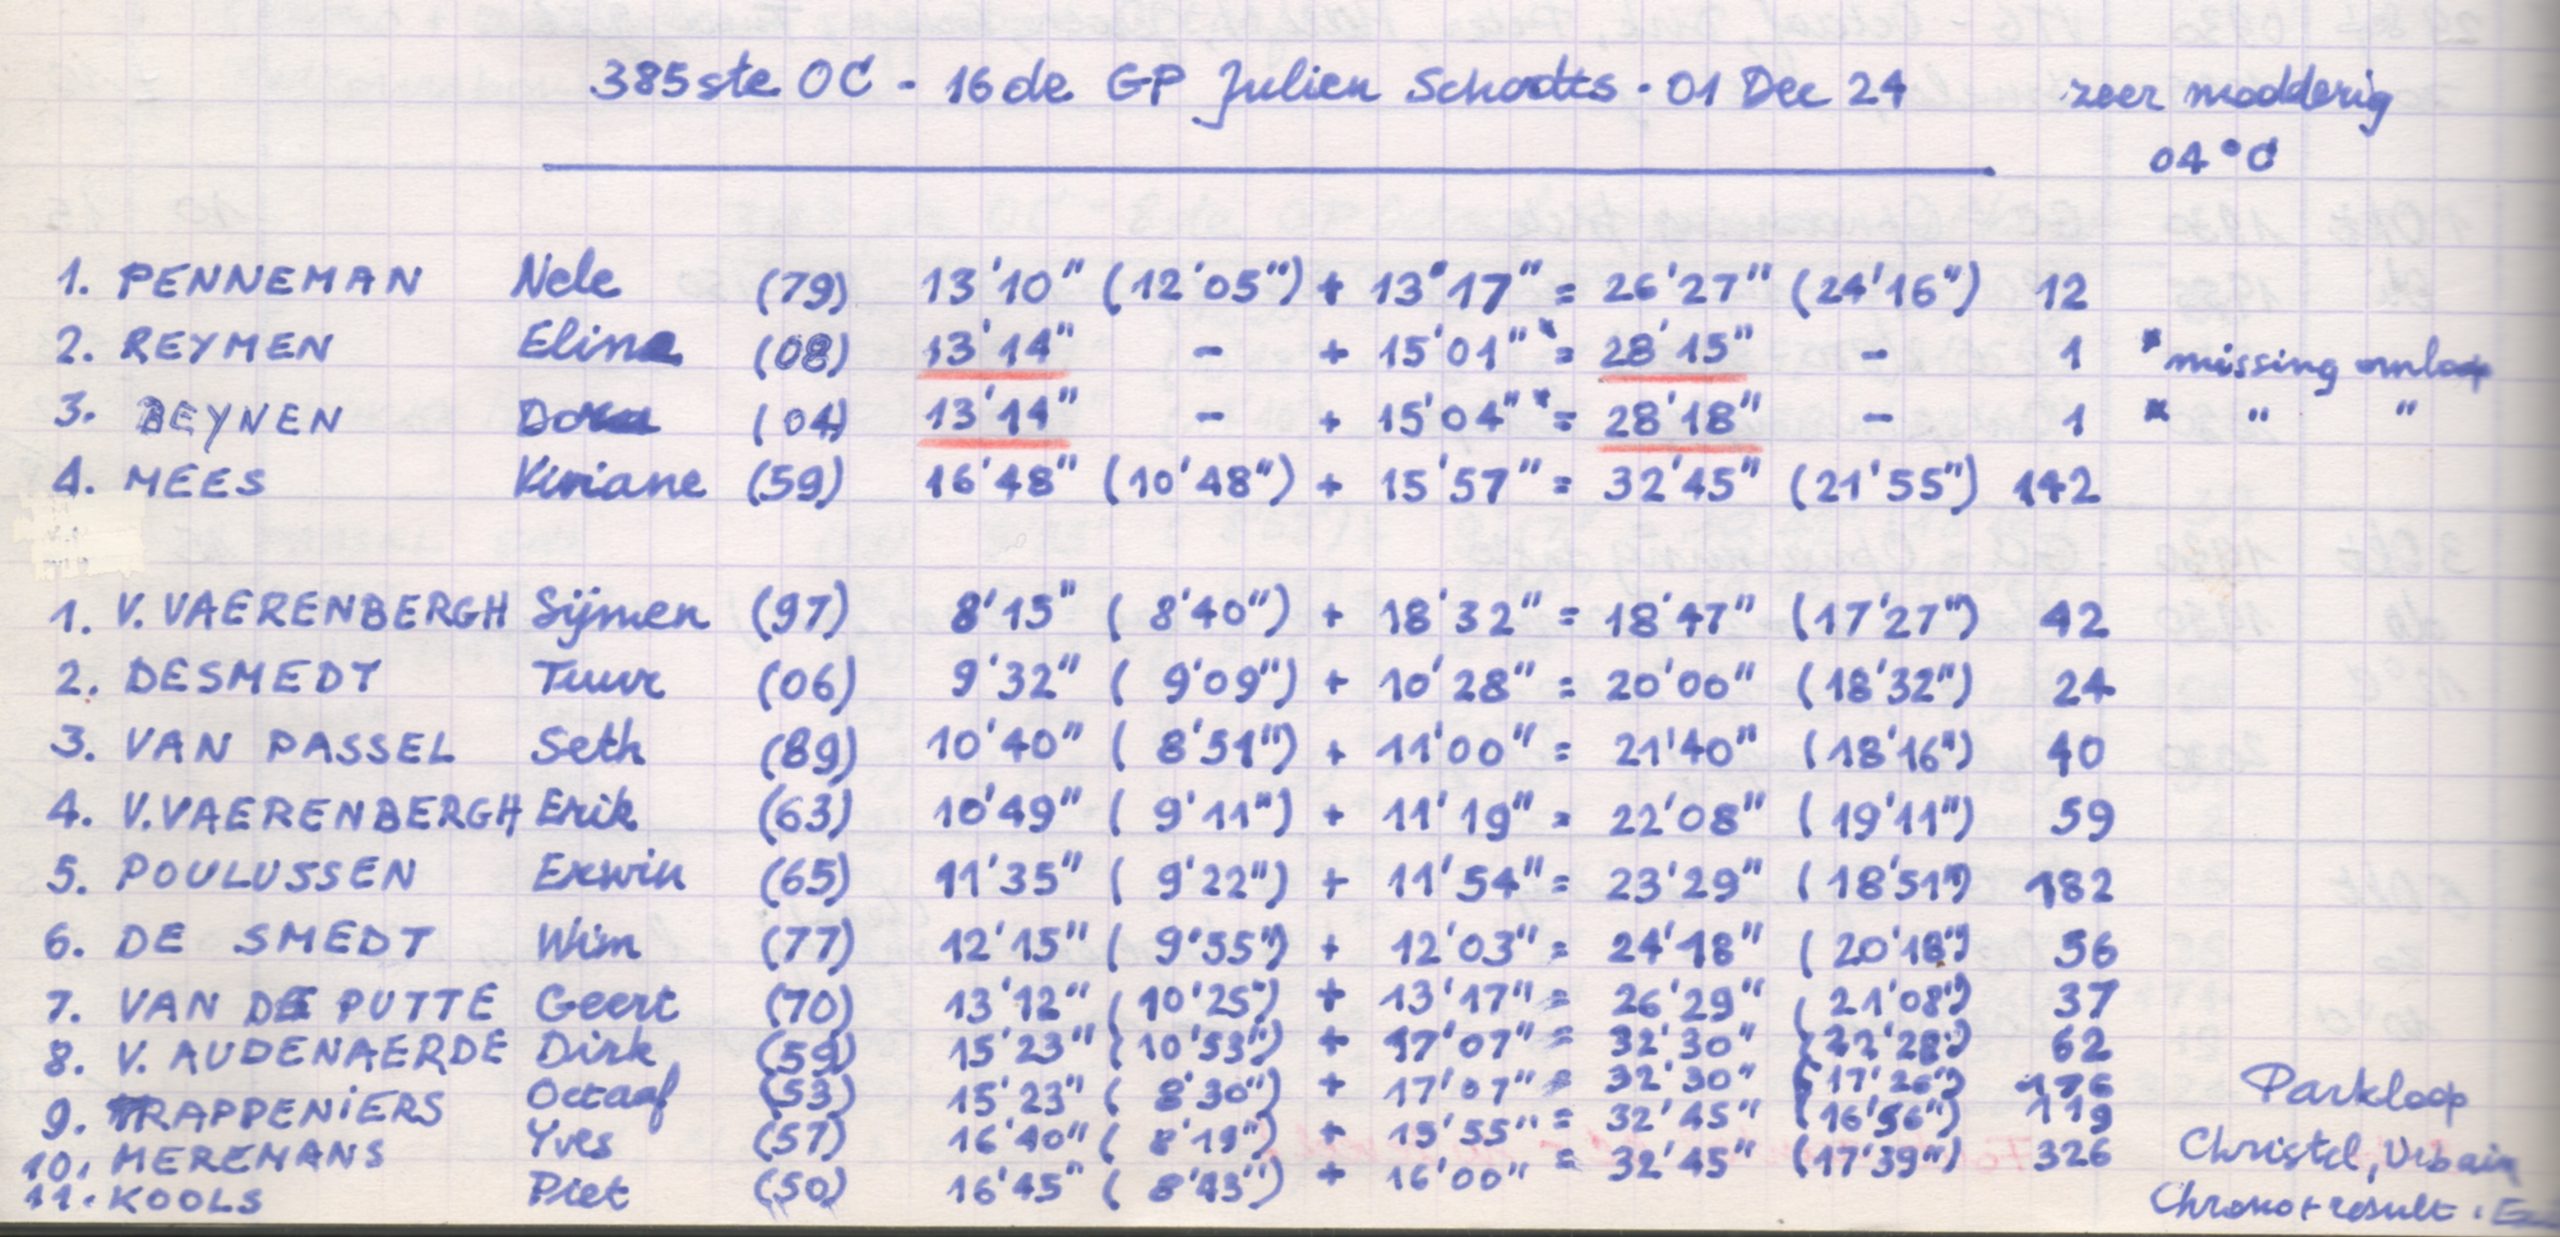 385ste OC - 16de GP Julien Schodts - 01 Dec 24 zeer modderig
04°C
1. PENNEMAN Nele (79) 13'10" (12'05") + 13'17" = 26'27" (24'16") 12
2. REYMEN Elina (08) 13'14" - + 15'01"* = 28'15" - 1 * missing omloop
3. BEYNEN (04) 13'14" - + 15'04"* = 28'18" - 1 * " "
4. MEES Viviane (59) 16'48" (10'48") + 15'57" = 32'45" (21'55") 142
1. V. VAERENBERGH Sijmen (97) 8'15" (8'40") + 18'32" = 18'47" (17'27") 42
2. DESMEDT Tuur (06) 9'32" (9'09") + 10'28" = 20'00" (18'32") 24
3. VAN PASSEL Seth (89) 10'40" (8'51") + 11'00" = 21'40" (18'16") 40
4. V. VAERENBERGH Erik (63) 10'49" (9'11") + 11'19" = 22'08" (19'11") 59
5. POULUSSEN Erwin (65) 11'35" (9'22") + 11'54" = 23'29" (18'51") 182
6. DE SMEDT Wim (77) 12'15" (9'55") + 12'03" = 24'18" (20'18") 56
7. VAN DE PUTTE Geert (70) 13'12" (10'25") + 13'17" = 26'29" (21'08") 37
8. V. AUDENAERDE Dirk (59) 15'23" (10'53") + 17'07" = 32'30" (22'28") 62
9. TRAPPENIERS Octaaf (53) 15'23" (8'30") + 17'07" = 32'30" (17'26") 176 Parkloop
10. MEREMANS Yves (57) 16'40" (8'19") + 15'55" = 32'45" (16'56") 119 Christel, Urbain
11. KOOLS Piet (50) 16'45" (8'43") + 16'00" = 32'45" (17'39") 326 Chrono + result.